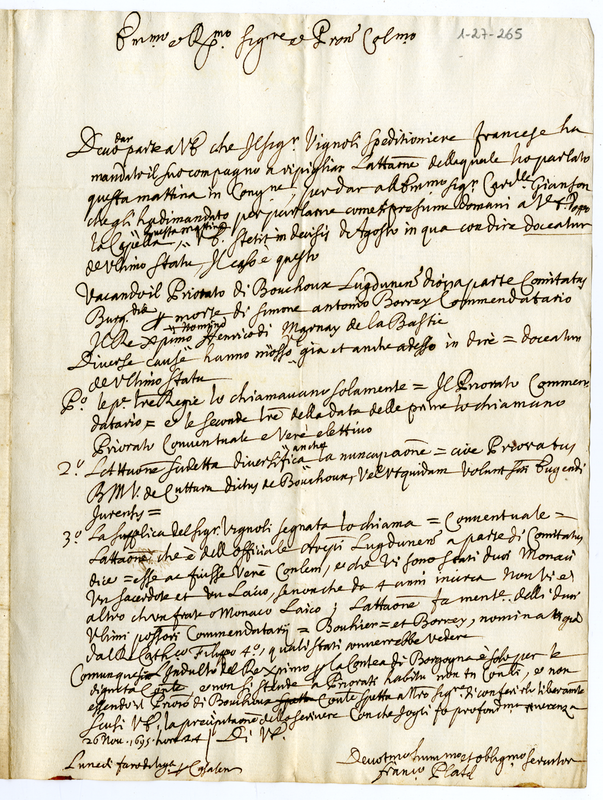 Em.mo e R.mo Sig.re e Pron Col.mo
1-27-265
Devo dar parte a VE che Il Sigr Vignoli Speditioniere francese ha
mandato il suo compagno a ripigliar l'attaõne della quale ho parlato
questa mattina in Congne, per dar all Em.mo Sigr Card.le Gianson
che gli ha dimandato per parlarne come si presume domani a
la Capella questa mattina, VE. stetit in decisis di Agosto in qua con dire doceatur
de Ultimo Statu Il caso è questo
Vacando il Priorato di Bouchoux Lugdunen diona parte Comitatus
Burg.diæ p morte di Simone antonio Borrey Commendatario
Il Re Xpmo nominò Henrico di Marnay de la Bastie
Diverse cause hanno mosso già et anche adesso in dire = doceatur
de Ultimo Statu
P.o le p.e lre Regie lo chiamavano solamente = Il Priorato Commen-
datario = e le seconde lre della data delle prime lo chiamano
Priorato Conventuale e Vere elettivo
2.o L'ettuone sudetta diversifica anche la nuncupaõne = cive Prioratus
B.M.V. de Cuttura dictus de Bouchoux, Vel Ut quidam Volunt Sti Eugendi
Jurensis =
3.o La supplica del sigr. Vignoli segnata lo chiama = Conventuale =
L'attaõne che è dell'Officiale Lugdunen a parte di Comitatus
dice = esse ac fuisse Verè Conlem, e che Vi sono stati duoi Monaci
Un sacerdote et Un Laico, se non che da 4 anni incirca non Vi è
altro ch'un frate o Monaco Laico; L'attaõne fa mente delli duoi
Ultimi possori Commendatarij = Bouhier = et Borrey, nominati già
dal Re Catt.co Filipo 4.o, quali stati converrebbe vedere
Comunque sia Indulto del Re Xpmo p la Contea di Borgogna è solo per le
dignità Conle, e non si stende a Priorati habitu non tn Conli, e non
essendo il Prior.o di Bouchoux Conle spetta a Nro Sigr. di conferirlo liberamte
Scusi VE. la precipitaõne dello scrivere Con che fogli fo profondma reverenza
26 Nov. 1695. hore 24 Di VE.
Lunedi farò diligza p Casalen
Devotmo hummo et obligmo servitor
Franco Plate